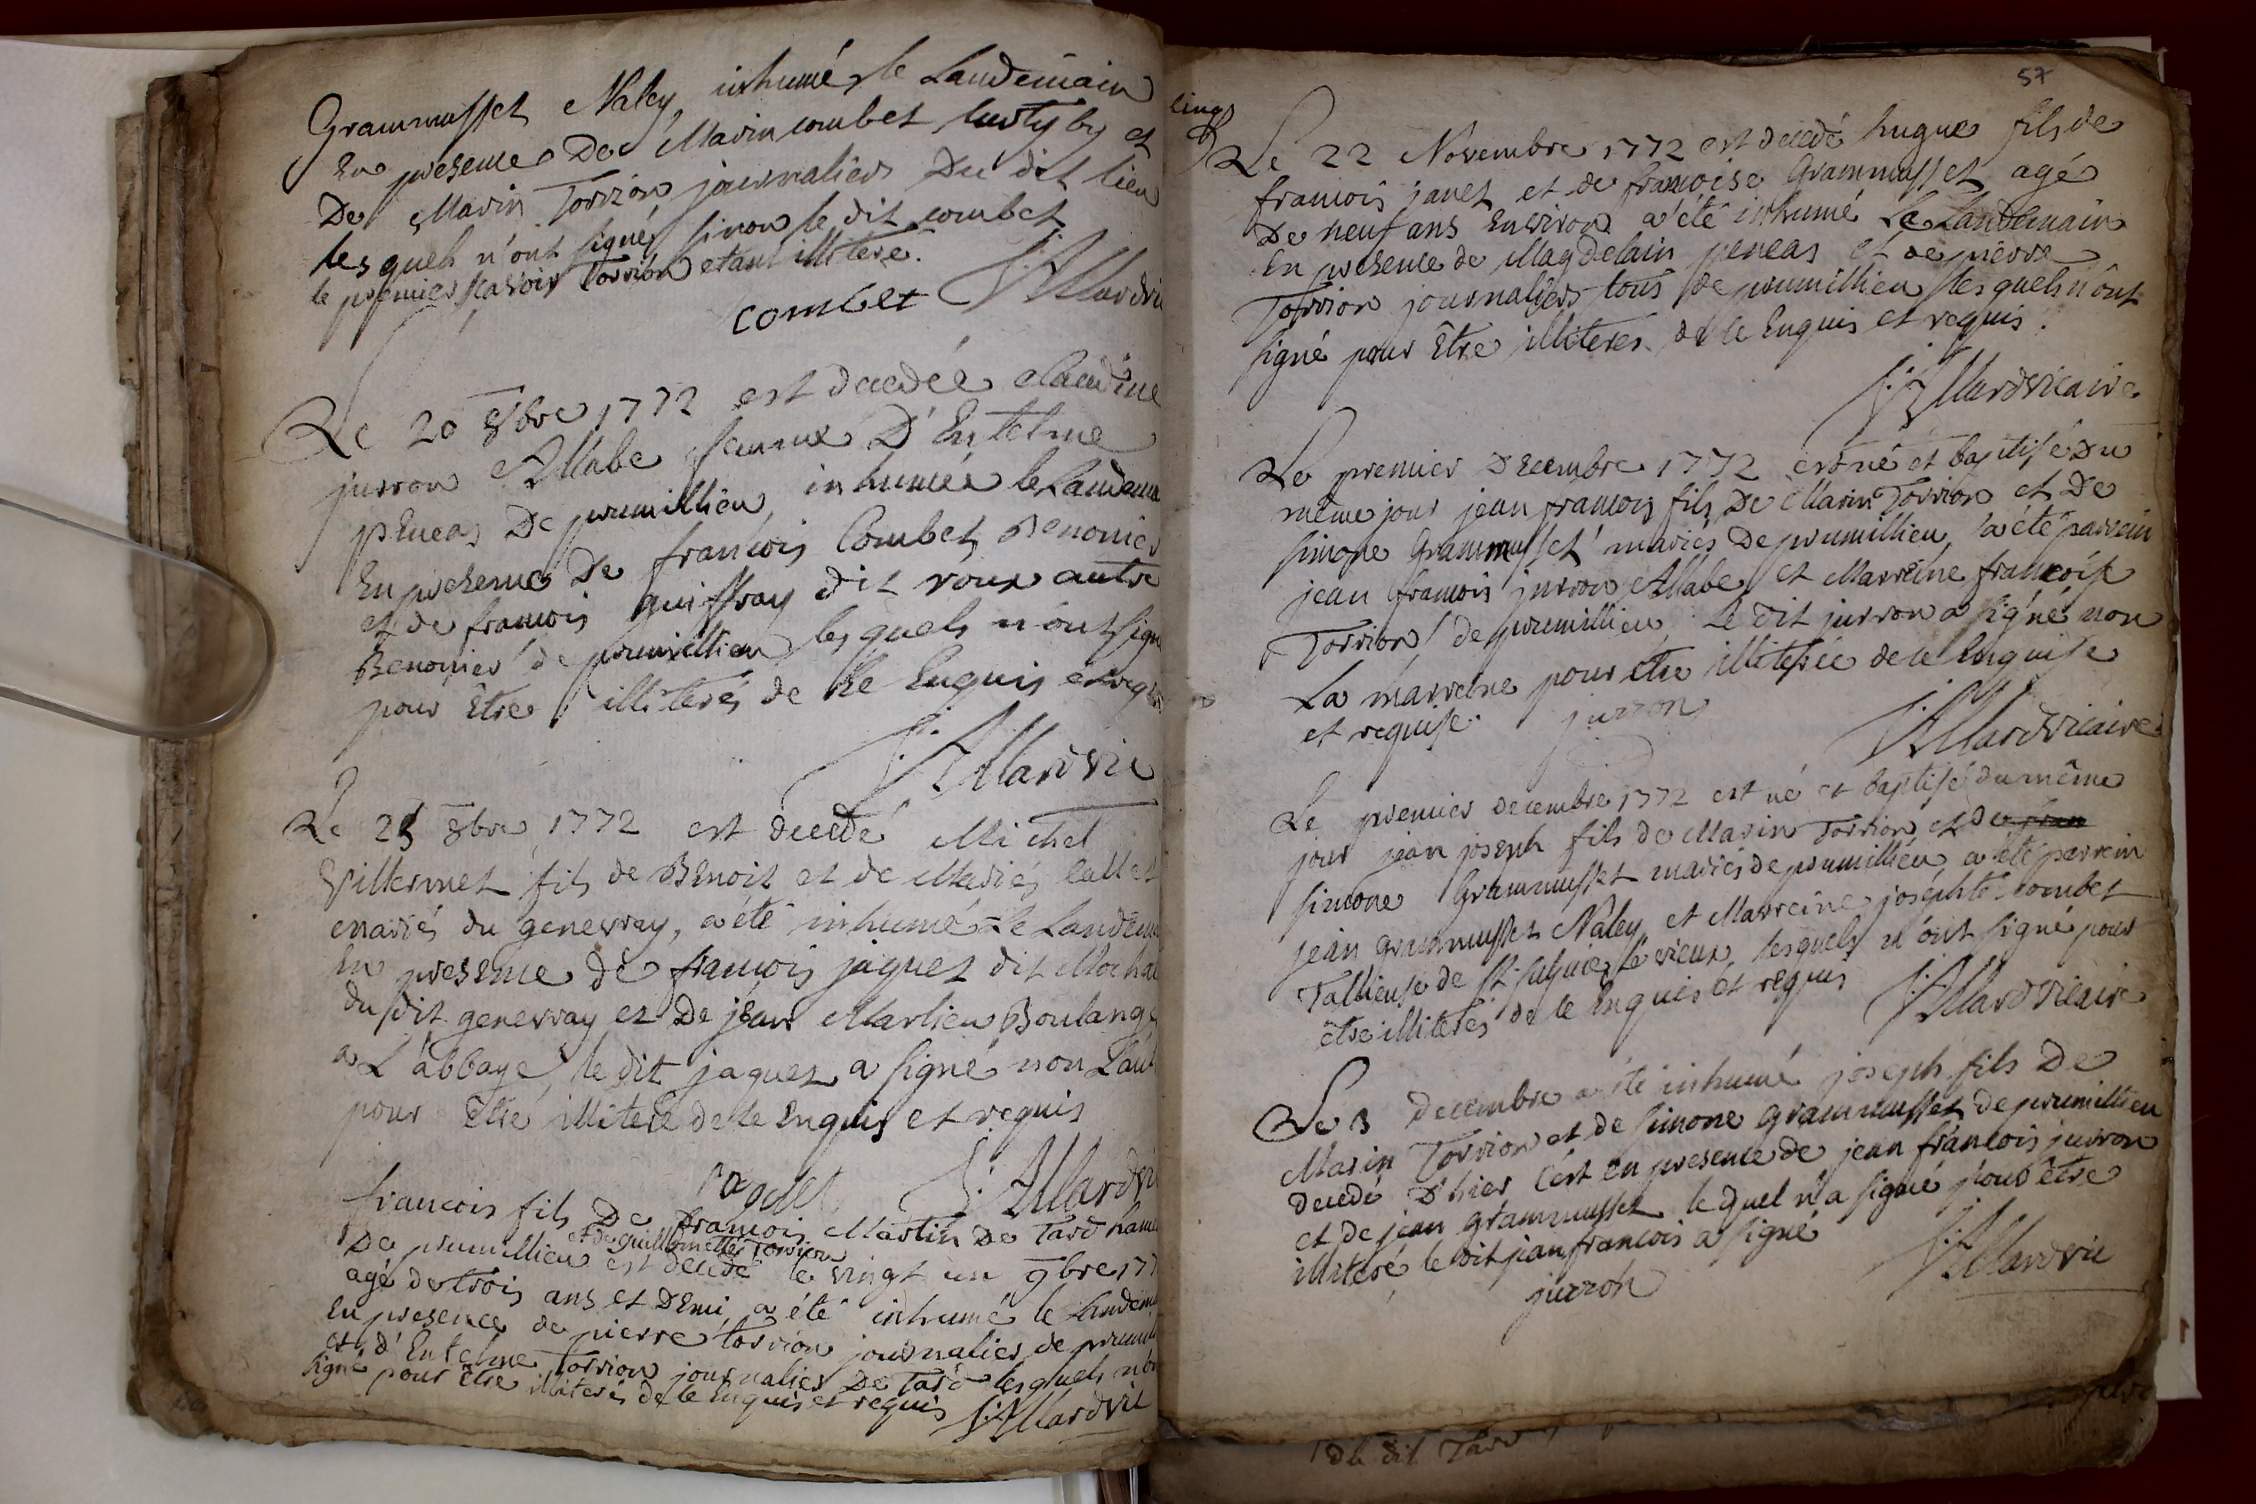 Grammusset Naley, inhumé le Landemain
En presence De Marin combet
De Marin Torrion journaliers Du dit lieu
lesquels n'ont signé sinon le dit combet
le premier Torrion etant illiteré.
combet J: Allard vic
Le 20 8bre 1772 est decedée claudine
jurron Allabe femme D'Entelme
peneas De prumillieu, inhumée le Landema
En presence De francois Combet Benonier
et de francois guiffray dit roux autre
Benonier de prumillieu lesquels n'ont signé
pour être illiterés de le Enquis et requis
J: Allard vic
Le 25 8bre 1772 est decedé Michel
Villermet fils de Benoit et de
mariés du genevray, a été inhumé le Landem
En presence de francois jaquet dit
du dit genevray et De jean Marlieu Boulang
a L'abbaye, le dit jaquet a signé non L'au
pour être illiteré de le Enquis et requis
jaquet J: Allard vi
francois fils De francois Martin De Tard
et de guillermette Torrion
De prumillieu est decedé le vingt un 9bre 177
agé de trois ans et Demi, a été inhumé le Landem
En presence de pierre torrion journalier de prumil
et d'Entelme Torrion journalier De Tard lesquels n'o
signé pour être illiterés de le Enquis et requis J: Allard vic
57
Le 22 Novembre 1772 est decedé hugue fils de
francois janet et de francoise Grammusset agé
De neuf ans Environ a été inhumé Le Landemain
En presence de Magdelain peneas et de pierre
Torrion journaliers tous de prumillieu lesquels n'ont
signé pour Être illiterés de le Enquis et requis.
J: Allard vicaire
Le premier Decembre 1772 est né et baptisé Du
même jour jean francois fils De Marin Torrion et De
simone Grammusset mariés De prumillieu, a été parrein
jean francois jurron Allabe et Marreine francoise
Torrion de prumillieu Le dit jurron a signé non
La marreine pour être illiterée de le Enquise
et requise. jurron J: Allard vicaire
Le premier Decembre 1772 est né et baptisé du même
jour jean joseph fils de Marin Torrion et De fran
simone Grammusset mariés de prumillieu a été parrein
jean grammusset Naley et Marreine josephte combet
Tallieuse de St le vieux, lesquels n'ont signé pour
être illiterés de le Enquis et requis J: Allard vicaire
Le 3 decembre a été inhumé joseph fils De
Marin Torrion et de simone grammusset de prumillieu
decedé D'hier C'est en presence de jean francois jurron
et de jean grammusset lequel n'a signé pour être
illiteré le dit jean francois a signé
jurron J: Allard vic
de dit Tard